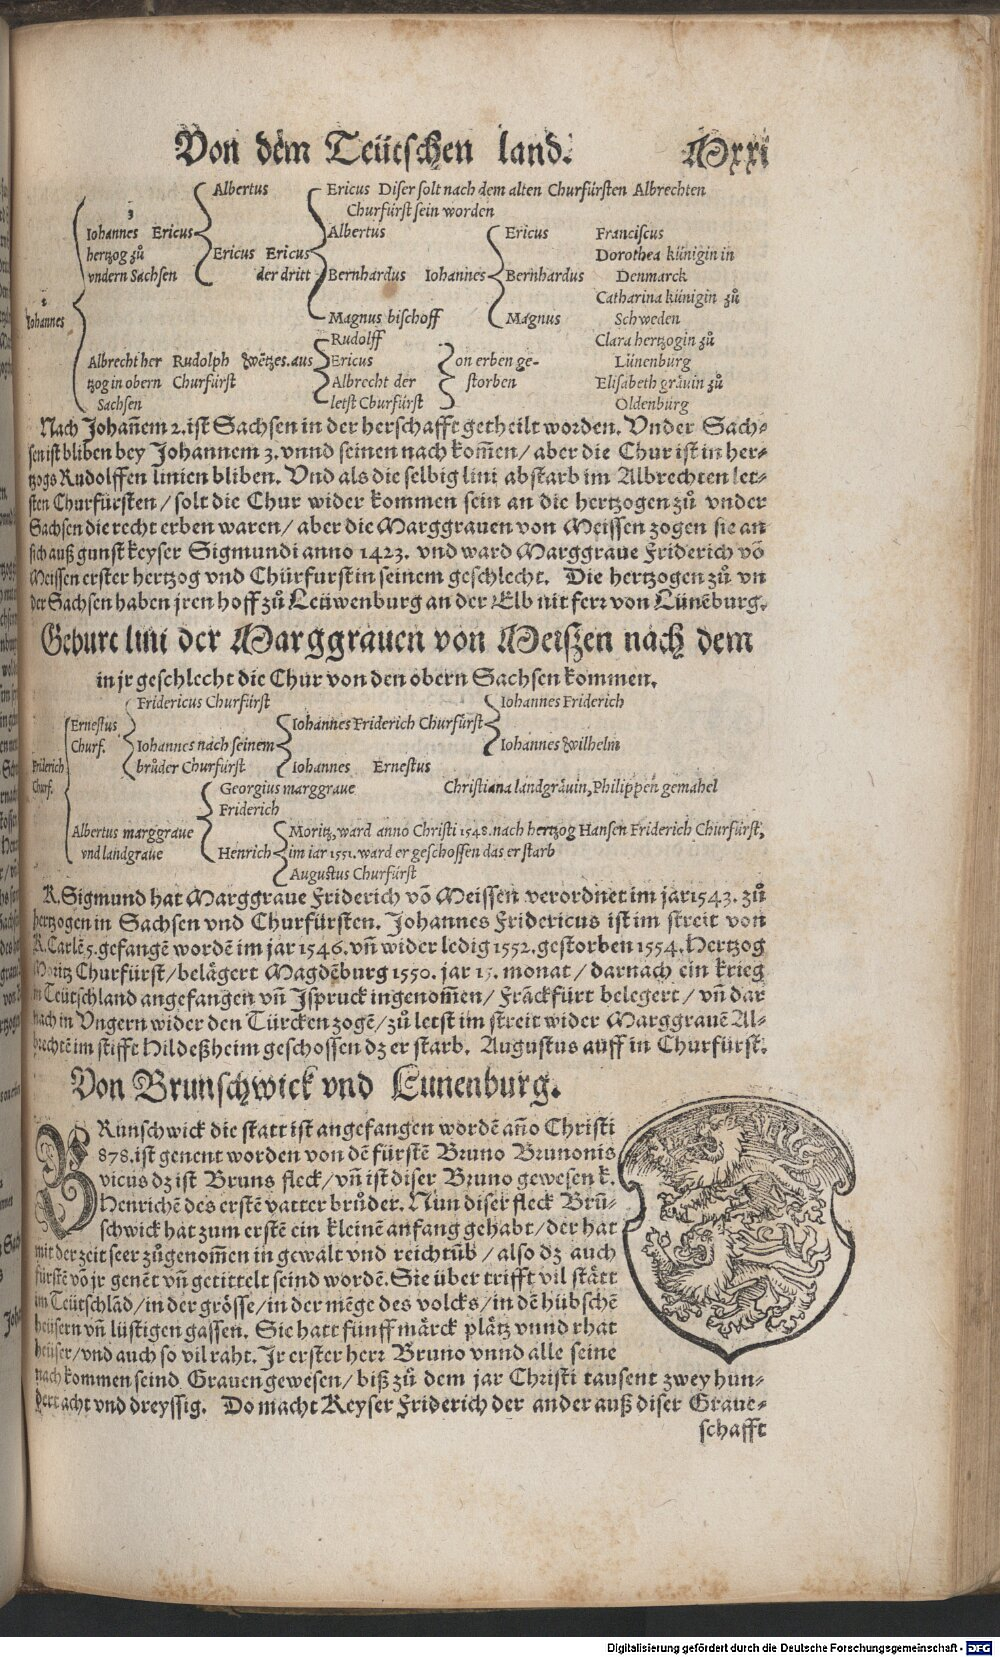 Von dem Teütschen land. Mxxi
Albertus Ericus Diser solt nach dem alten Churfürsten Albrechten
3 Churfürst sein worden
Iohannes Ericus Albertus Ericus Franciscus
hertzog zů Ericus Ericus Dorothea künigin in
vndern Sachsen der dritt Bernhardus Iohannes Bernhardus Denmarck
2 Catharina künigin zů
Iohannes Magnus bischoff Magnus Schweden
Rudolff Clara hertzogin zů
Albrecht her Rudolph Wētzes.aus Ericus on erben ge- Lünenburg
tzog in obern Churfürst Albrecht der storben Elisabeth grävin zů
Sachsen letst Churfürst Oldenburg
Nach Johan̄em 2. ist Sachsen in der herschafft getheilt worden. Vnder Sach-
sen ist bliben bey Johannem 3. vnnd seinen nach kom̄en/ aber die Chur ist in her-
tzogs Rudolffen linien bliben. Vnd als die selbig lini abstarb im Albrechten let-
sten Churfürsten/ solt die Chur wider kommen sein an die hertzogen zů vnder
Sachsen die recht erben waren/ aber die Marggrauen von Meissen zogen sie an
sich auß gunst keyser Sigmundi anno 1423. vnd ward Marggraue Friderich vō
Meissen erster hertzog vnd Chürfurst in seinem geschlecht. Die hertzogen zů vn
der Sachsen haben jren hoff zů Leüwenburg an der Elb nit ferr von Lünēburg.
Geburt lini der Marggrauen von Meiszen nach dem
in jr geschlecht die Chur von den obern Sachsen kommen.
Fridericus Churfürst Iohannes Friderich
Ernestus Iohannes Friderich Churfürst
Churf. Iohannes nach seinem Iohannes Wilhelm
Friderich brůder Churfürst Iohannes Ernestus
Churf. Georgius marggraue Christiana landgrävin, Philippen̄ gemahel
Friderich
Albertus marggraue Moritz, ward anno Christi 1548. nach hertzog Hansen Friderich Churfürst,
vnd landgraue Henrich im iar 1551. ward er geschossen das er starb
Augustus Churfürst
K. Sigmund hat Marggraue Friderich vō Meissen verordnet im jar 1543. zů
hertzogen in Sachsen vnd Churfürsten. Johannes Fridericus ist im streit von
K. Carlē 5. gefangē wordē im jar 1546. vn̄ wider ledig 1552. gestorben 1554. Hertzog
Moritz Churfürst/ belägert Magdēburg 1550. jar 15. monat/ darnach ein krieg
in Teütschland angefangen vn̄ Jspruck ingenom̄en/ Frāckfürt belegert/ vn̄ dar
nach in Vngern wider den Türcken zogē/ zů letst im streit wider Marggrauē Al-
brechtē im stifft Hildeßheim geschossen dz er starb. Augustus auff in Churfürst.
Von Brunschwick vnd Lunenburg.
BRunschwick die statt ist angefangen wordē an̄o Christi
878. ist genent worden von dē fürstē Bruno Brunonis
vicus dz ist Bruns fleck/ vn̄ ist diser Bruno gewesen k.
Henrichē des erstē vatter brůder. Nun diser fleck Brū-
schwick hat zum erstē ein kleinē anfang gehabt/ der hat
mit der zeit seer zůgenom̄en in gewalt vnd reichtūb/ also dz auch
fürstē vō jr genēt vn̄ getittelt seind wordē. Sie über trifft vil stätt
im Teütschlād/ in der grösse/ in der mēge des volcks/ in dē hübschē
heüsern vn̄ lüstigen gassen. Sie hatt fünff märck plätz vnnd rhat
heüser/ vnd auch so vil raht. Jr erster herr Bruno vnnd alle seine
nach kommen seind Grauen gewesen/ biß zů dem jar Christi tausent zwey hun-
dert acht vnd dreyssig. Do macht Keyser Friderich der ander auß diser Graue-
schafft
Digitalisierung gefördert durch die Deutsche Forschungsgemeinschaft - DFG